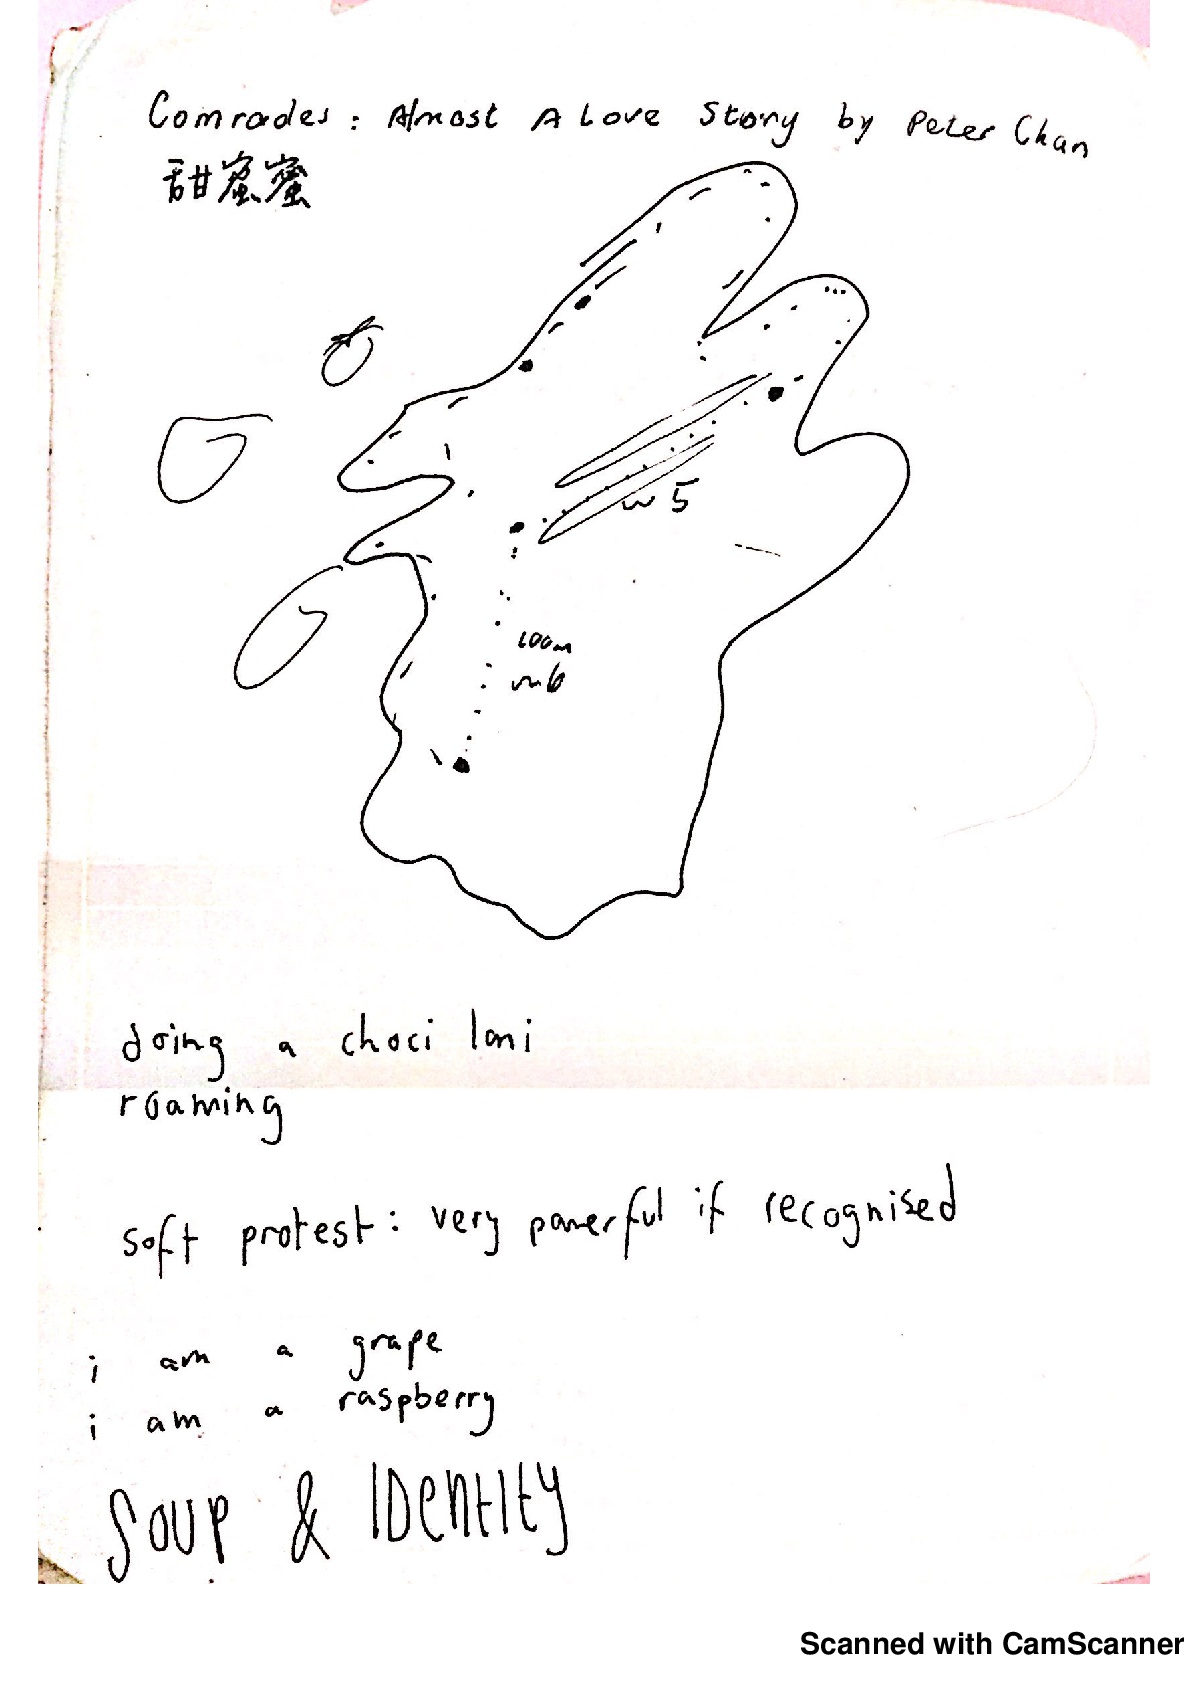 Comrades: Almost A Love Story by Peter Chan
甜蜜蜜
w 5
100m
doing a choci loni
roaming
soft protest: very powerful if recognised
i am a grape
i am a raspberry
Soup & IDENtIty
Scanned with CamScanner